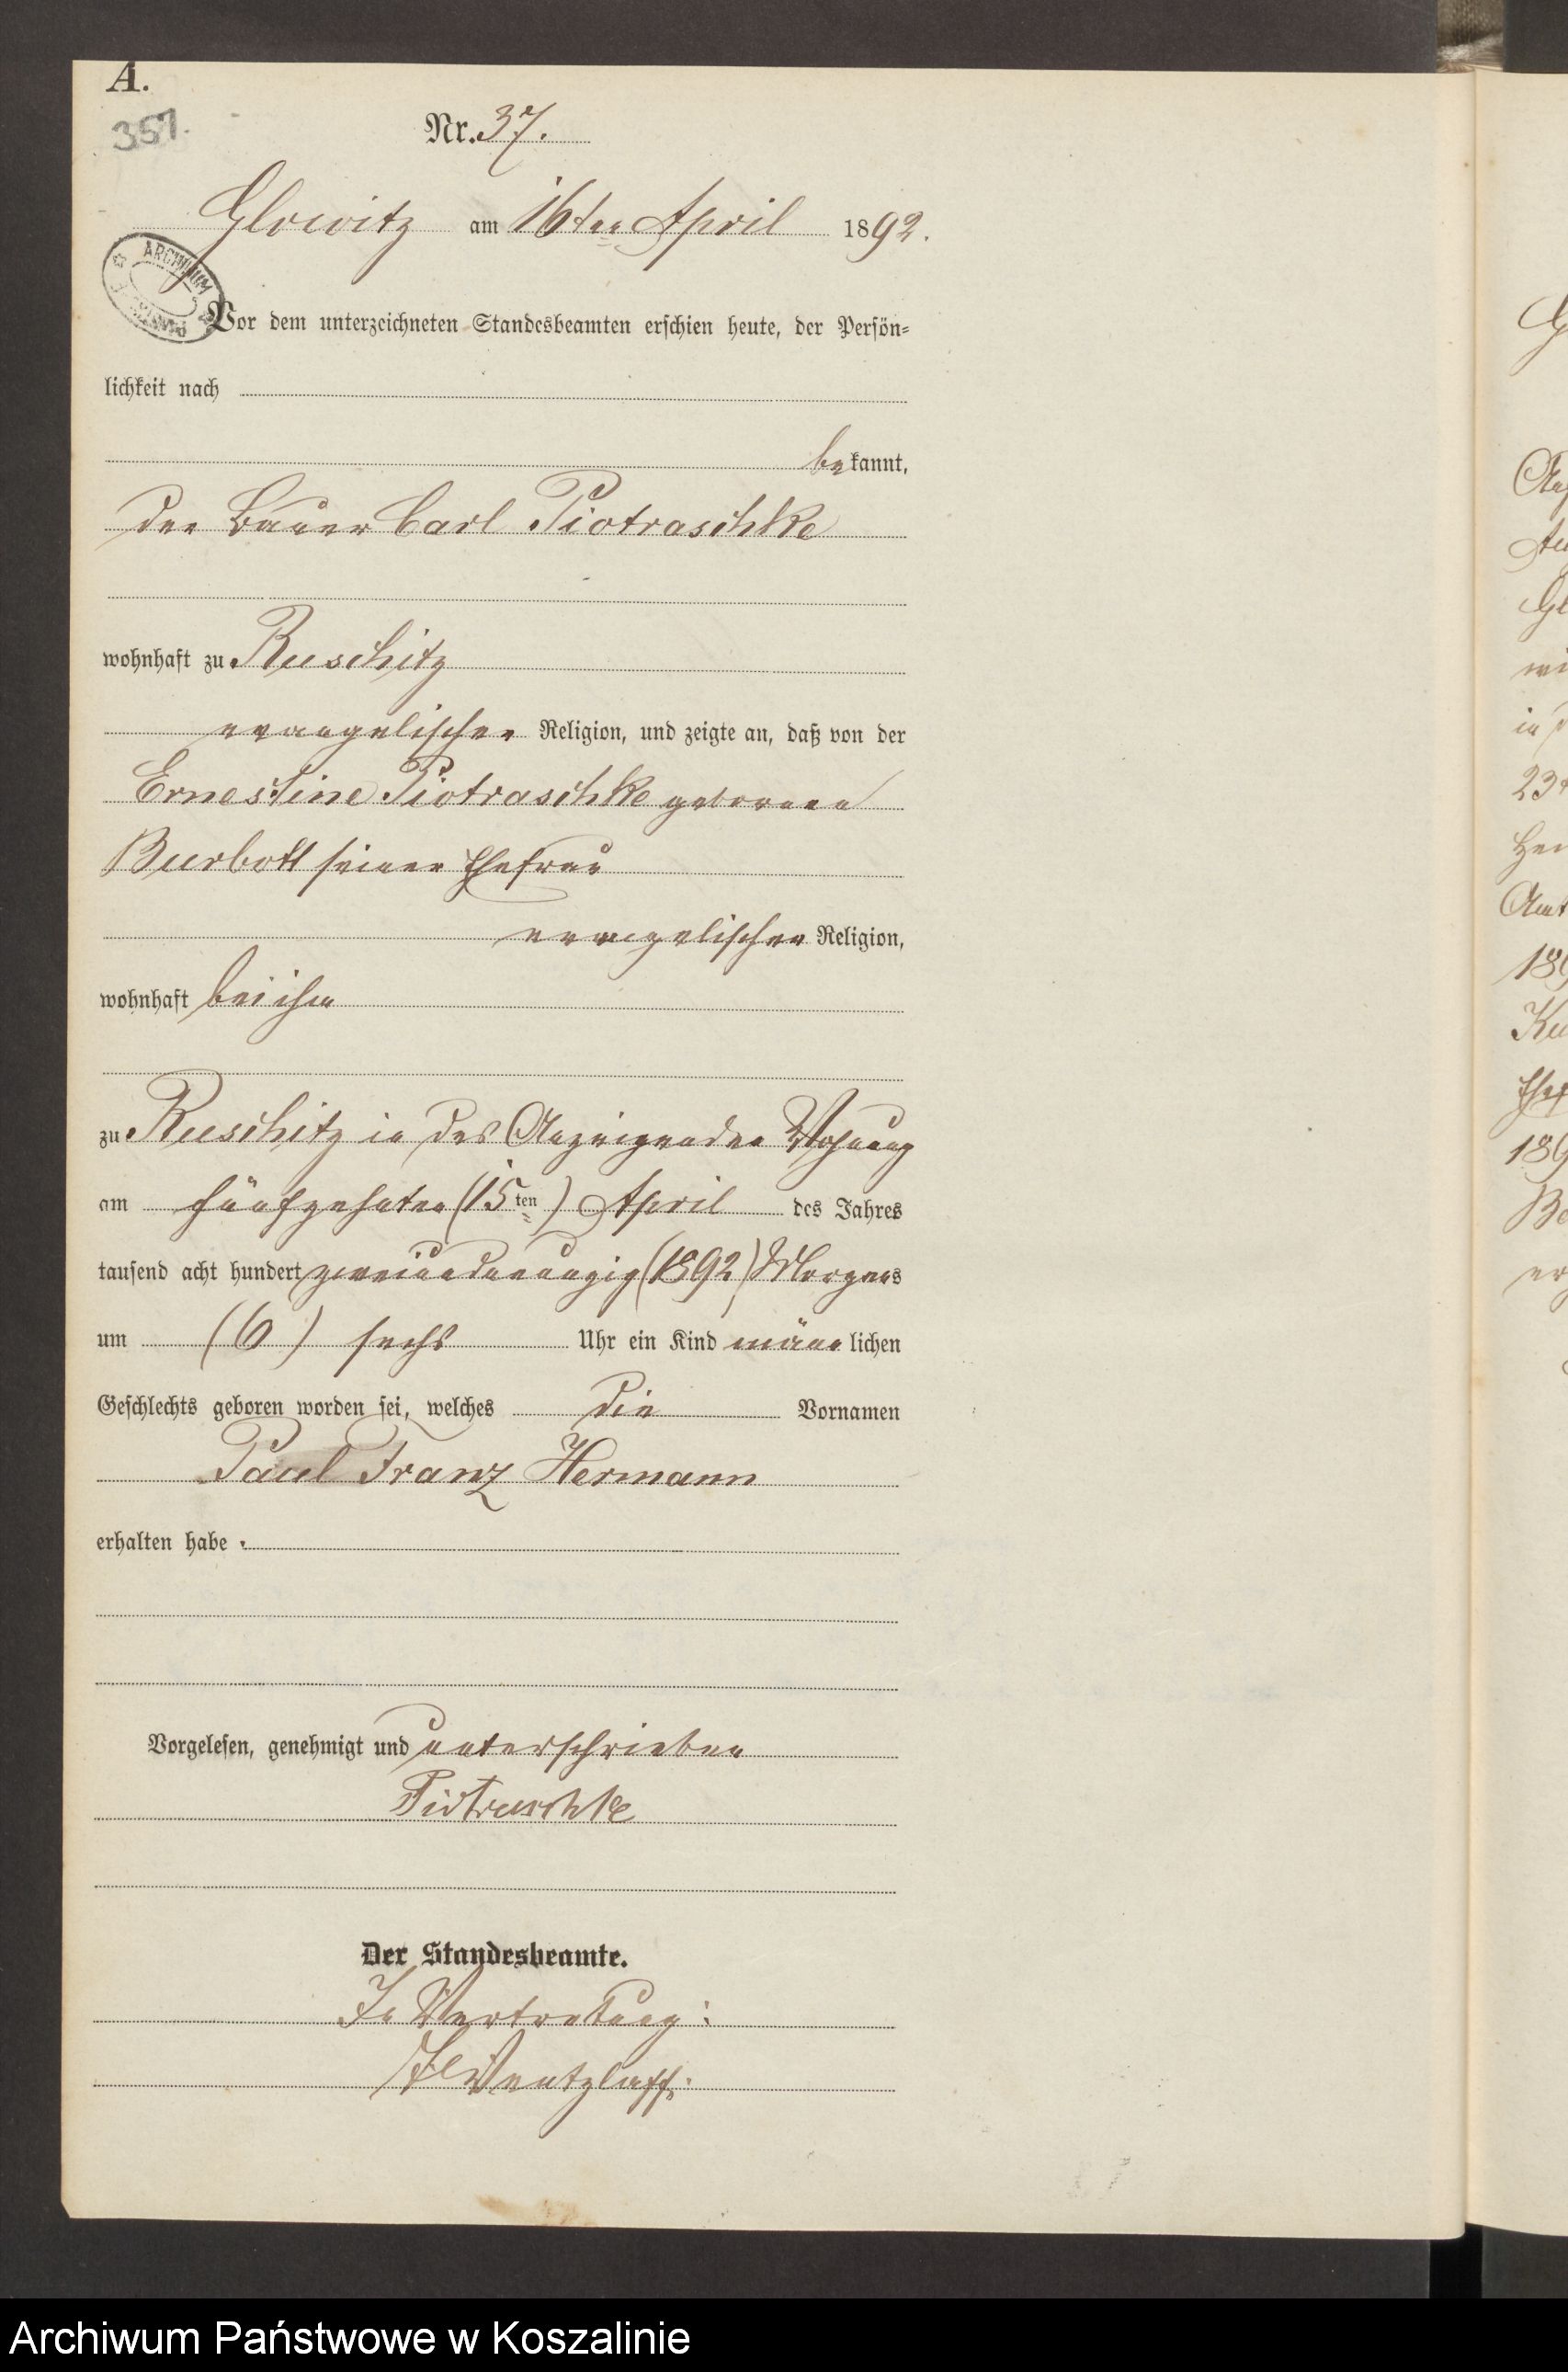 A.
357.
Nr. 37.
Glowitz am 16ten April 1892.
ARCHIWUM
Vor dem unterzeichneten Standesbeamten erschien heute, der Persön=
lichkeit nach
bekannt,
der Bauer Carl Piotraschke
wohnhaft zu Ruschitz
evangelischer Religion, und zeigte an, daß von der
Ernestine Piotraschke geborene
Burbott seiner Ehefrau
evangelischer Religion,
wohnhaft bei ihm
zu Ruschitz in des Anzeigenden Wohnung
am fünfzehnten (15ten) April des Jahres
tausend acht hundert zweiundneunzig (1892) Morgens
um (6) sechs Uhr ein Kind männlichen
Geschlechts geboren worden sei, welches die Vornamen
Paul Franz Hermann
erhalten habe.
Vorgelesen, genehmigt und unterschrieben
Piotraschke
Der Standesbeamte.
In Vertretung:
Wentzlaff.
Archiwum Państwowe w Koszalinie